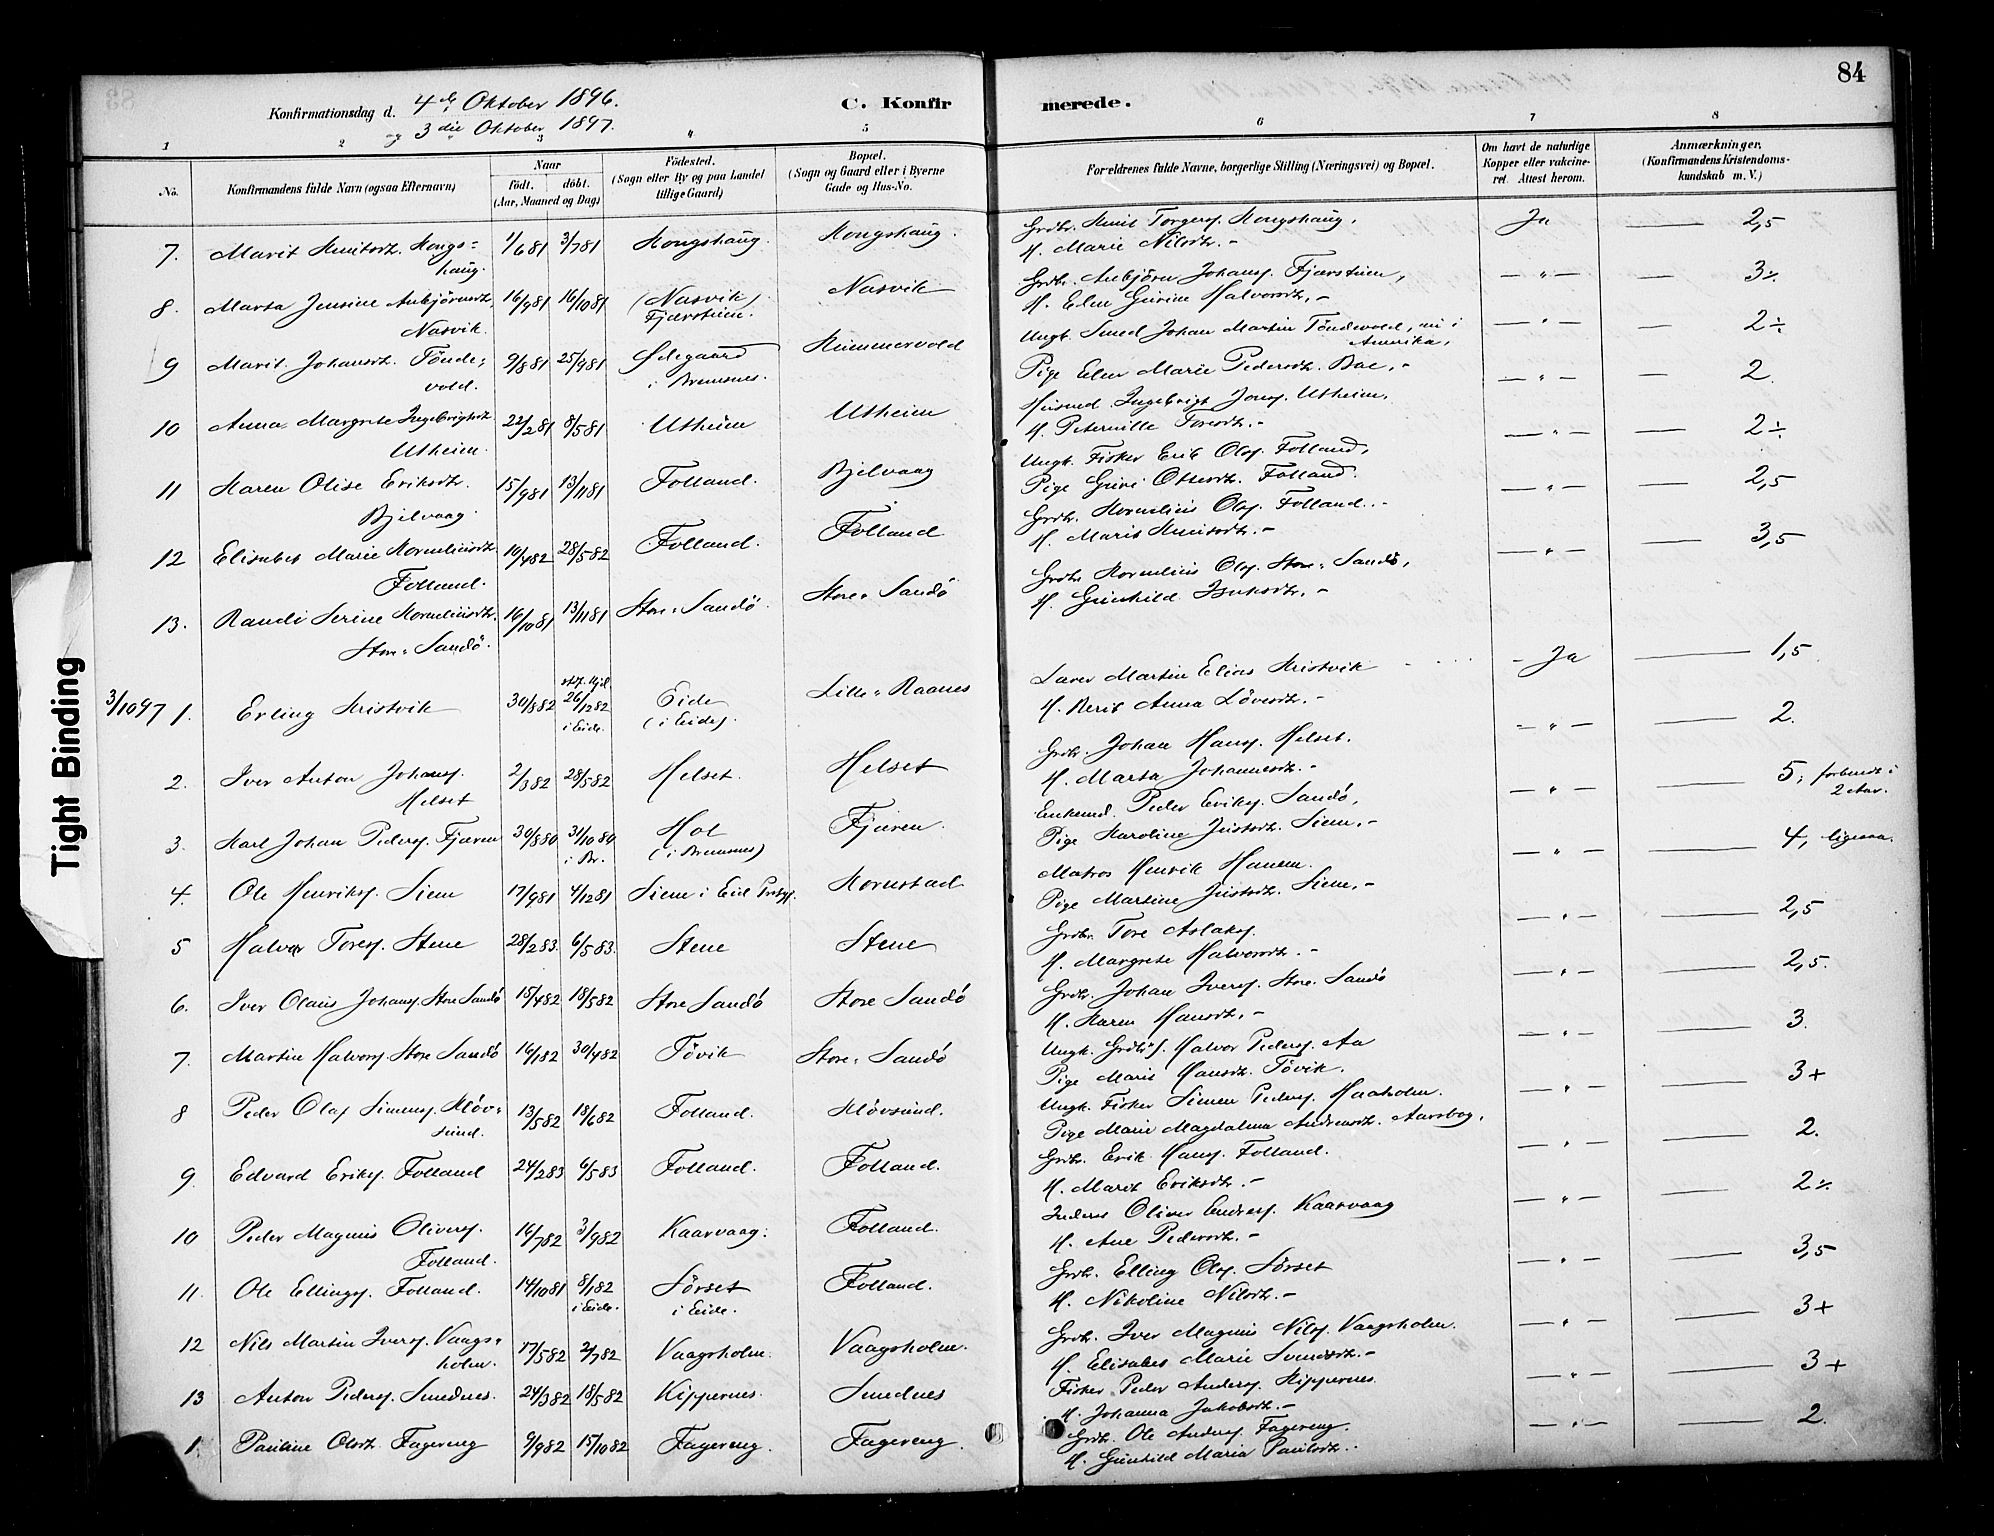 84
Konfirmationsdag d. 4de Oktober 1896.
og 3die Oktober 1897.
C. Konfirmerede.
1 2 3 4 5 6 7 8
No.
Konfirmandens fulde Navn (ogsaa Efternavn)
Naar
födt. döbt.
(Aar, Maaned og Dag)
Födested.
(Sogn eller By og paa Landet
tillige Gaard)
Bopæl.
(Sogn og Gaard eller i Byerne
Gade og Hus-No.
Forældrenes fulde Navne, borgerlige Stilling (Næringsvei) og Bopæl.
Om havt de naturlige
Kopper eller vakcine-
ret. Attest herom.
Anmærkninger.
(Konfirmandens Kristendoms-
kundskab m. V.)
7. Marit Knutsdt. Kongs=
haug. 1/6 81 3/7 81 Kongshaug. Kongshaug. Grdbr. Knut Torgersp. Kongshaug.
K. Marie Nilsdt. - Ja — 2,5
8. Marta Jensine Anbjörnsdt.
Nasvik. 16/9 81 16/10 81 (Nasvik)
Fjærstuen. Nasvik Grdbr. Anbjörn Johans. Fjærstuen,
H. Elen Gurine Halvorsdt. - — " — — 3÷
9 Marit Johansdt. Tönde=
vold. 9/8 81 25/9 81 Ødegaard
i Bremsnes. Ungk. Smed Johan Martin Töndevold, nu i
Amerika,
Pige Elen Marie Pedersdt. Bae. - — " — — 2÷
10 Anna Margrete Ingebrigtsdt.
Utheim. 22/2 81 8/5 81 Utheim Utheim Husmd. Ingebrigt Jons. Utheim,
H. Peternille Toresdt. - — " — — 2.
11 Karen Olise Eriksdt.
Bjelvaag. 15/9 81 13/11 81 Folland. Bjelvaag Ungk. Fisker Erik Ols. Folland,
Pige Guri Ottersdt. Folland. — " — — 2÷
12 Elisabet Marie Korneliusdt.
Folland. 10/4 82 28/5 82 Folland. Folland Grdbr. Kornelius Ols. Folland. -
H. Marit Knutsdt. - — " — — 2,5
13. Randi Serine Korneliusdt.
Store=Sandö. 16/10 81 13/11 81 Store=Sandö. Store=Sandö Grdbr. Kornelius Ols. Store=Sandö,
H. Gunhild Isaksdt. - — " — — 3,5
3/10 97 1. Erling Kristvik 30/8 82 26/12 82
i Eide. Eide
(i Eide). Lille=Raanes Lærer Martin Elias Kristvik
H. Berit Anna Lövesdt. - - Ja — 1,5.
2. Iver Anton Johans.
Helset 2/3 82 28/5 82 Helset. Helset Grdbr. Johan Hans. Helset.
H. Marta Johannesdt. - — " — — 2.
3. Karl Johan Peders. Fjæren 30/8 80 31/10 80
i Br. Hol
(i Bremsnes) Fjæren. Enkemd. Peder Eriks. Sandö,
Pige Karoline Justsdt. Siem. - — " — — 5, forberedt i
2 Aar.
4. Ole Henriks. Siem 17/9 81 4/12 81 Siem i Eid Kornstad Matros Henrik Hanem.
Pige Martine Justsdt. Siem. - — " — — 4, ligesaa.
5 Halvor Tores. Stene 28/2 83. 6/5 83. Stene Stene Grdbr. Tore Aslaks.
H. Margrete Halvorsdt. - — " — — 2,5
6. Iver Olaus Johans. Store Sandö 15/4 82 18/5 82 Store Sandö Store Sandö Grdbr. Johan Ivers. Store Sandö
H. Karen Hansdt. - — " — — 2,5.
7. Martin Halvors. Store Sandö 16/1 82 30/4 82 Tövik Store=Sandö Ungk. Grdbrs. Halvor Peders. Aa
Pige Marit Hansdt. Tövik. — " — — 3.
8 Peder Olaf Simens. Klöv=
sund. 13/5 82 18/6 82 Folland. Klövsund. Ungk. Fisker Simen Peders. Haaholm.
Pige Marie Magdalena Andreasdt. Aarsbog. — " — — 3+
9. Edvard Eriks. Folland 24/2 83 6/5 83 Folland. Folland. Grdbr. Erik Hans. Folland.
H. Marit Eriksdt. - — " — — 2.
10 Peder Magnus Olivers.
Folland. 16/7 82 3/9 82 Kaarvaag. Folland. Inderst Oliver Endres. Kaarvaag
H. Ane Pedersdt. - — " — — 2÷
11. Ole Ellings. Folland. 14/10 81 8/1 82
i Eide. Sörset
i Eide. Folland. Grdbr. Elling Ols. Sörset
H. Nikoline Nilsdt. - — " — — 3,5
12 Nils Martin Ivers. Vaags=
holm. 17/5 82 2/7 82 Vaagsholm. Vaagsholm. Grdbr. Iver Magnus Nils. Vaagsholm.
H. Elisabet Marie Svendsdt. - — " — — 3+
13 Anton Peders. Smednes. 24/3 82 18/5 82 Kippernes. Smednes Fisker Peder Anders. Kippernes.
H. Johanna Jakobsdt. - — " — — 3+
1. Pauline Olsdt. Fagereng 9/9 82 15/10 82 Fagereng. Fagereng. Grdbr. Ole Anders. Fagereng.
H. Gunhild Maria Paulsdt. — " — — 2.
Tight Binding